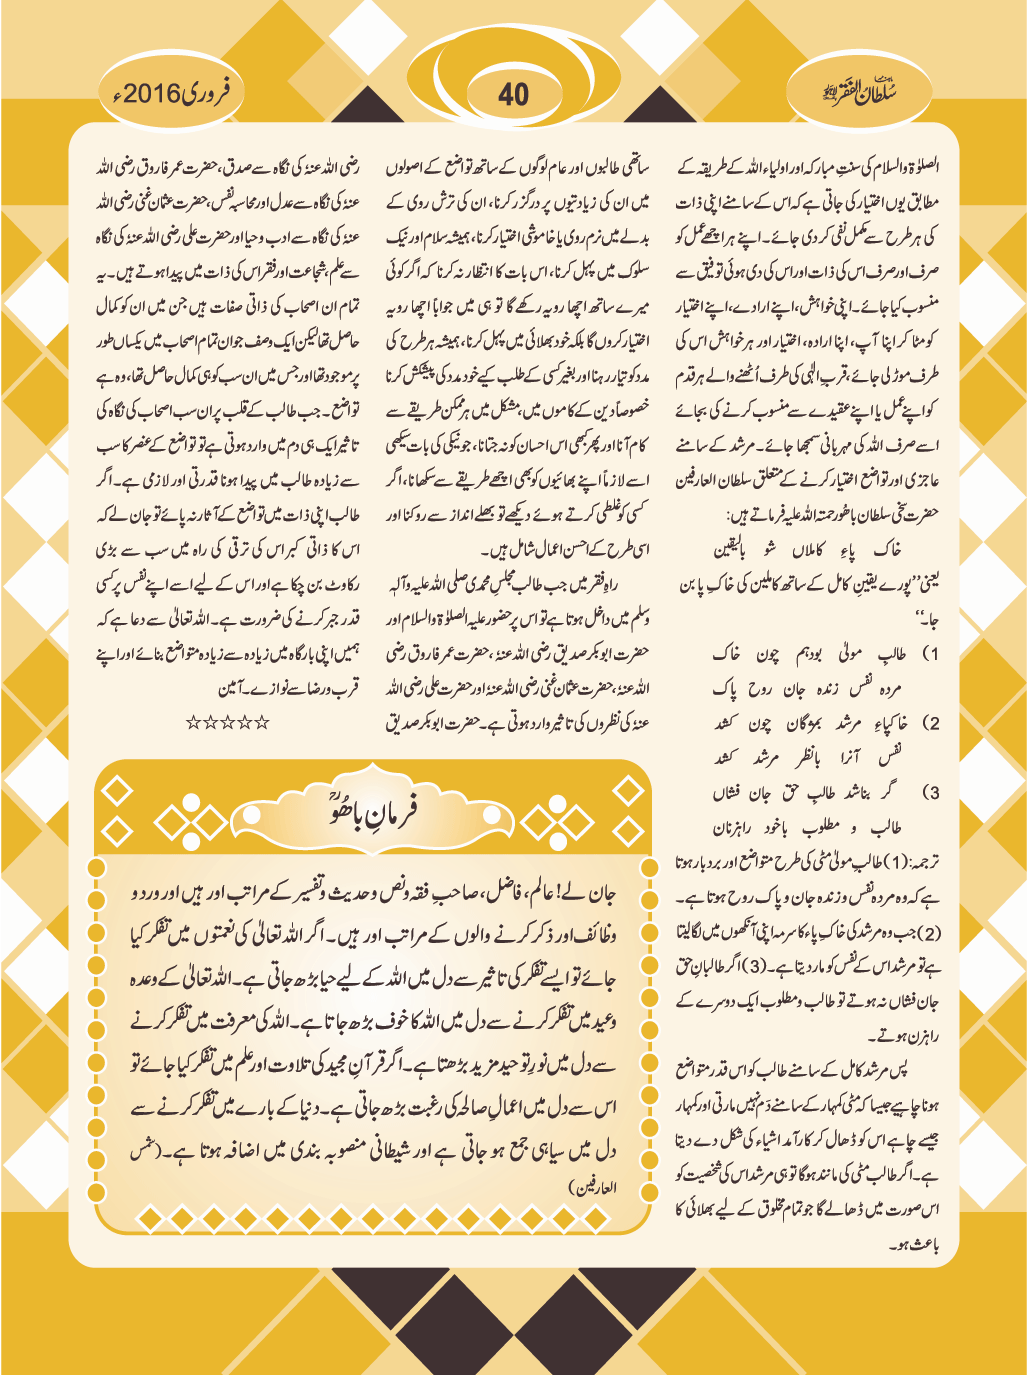 ماہنامہ سُلطان الفقر لاہور
40
فروری 2016ء
الصلوٰۃ والسلام کی سنتِ مبارکہ اور اولیاء اللہ کے طریقہ کے
مطابق یوں اختیار کی جاتی ہے کہ اس کے سامنے اپنی ذات
کی ہر طرح سے مکمل نفی کر دی جائے۔ اپنے ہر اچھے عمل کو
صرف اور صرف اس کی ذات اور اس کی دی ہوئی توفیق سے
منسوب کیا جائے۔ اپنی خواہش، اپنے ارادے، اپنے اختیار
کو مٹا کر اپنا آپ، اپنا ارادہ، اختیار اور ہر خواہش اس کی
طرف موڑ لی جائے، قربِ الٰہی کی طرف اُٹھنے والے ہر قدم
کو اپنے عمل یا اپنے عقیدے سے منسوب کرنے کی بجائے
اسے صرف اللہ کی مہربانی سمجھا جائے۔ مرشد کے سامنے
عاجزی اور تواضع اختیار کرنے کے متعلق سلطان العارفین
حضرت سخی سلطان باھُو رحمتہ اللہ علیہ فرماتے ہیں:
خاک پاءِ کاملاں شو بالیقین
یعنی ’’پورے یقینِ کامل کے ساتھ کاملین کی خاکِ پا بن
جا۔‘‘
1) طالبِ مولیٰ بودہم چون خاک
مردہ نفس زندہ جان روح پاک
2) خاکپاءِ مرشد بمژگان چون کشد
نفس آنرا بانظر مرشد کشد
3) گر بناشد طالبِ حق جان فشاں
طالب و مطلوب باخود راہزنان
ترجمہ: (1) طالبِ مولیٰ مٹی کی طرح متواضع اور بردبار ہوتا
ہے کہ وہ مردہ نفس و زندہ جان و پاک روح ہوتا ہے۔
(2) جب وہ مرشد کی خاکِ پاء کا سرمہ اپنی آنکھوں میں لگا لیتا
ہے تو مرشد اس کے نفس کو مار دیتا ہے۔ (3) اگر طالبانِ حق
جان فشاں نہ ہوتے تو طالب و مطلوب ایک دوسرے کے
راہزن ہوتے۔
پس مرشد کامل کے سامنے طالب کو اس قدر متواضع
ہونا چاہیے جیسا کہ مٹی کمہار کے سامنے دَم نہیں مارتی اور کمہار
جیسے چاہے اس کو ڈھال کر کارآمد اشیاء کی شکل دے دیتا
ہے۔ اگر طالب مٹی کی مانند ہوگا تو ہی مرشد اس کی شخصیت کو
اس صورت میں ڈھالے گا جو تمام مخلوق کے لیے بھلائی کا
باعث ہو۔
ساتھی طالبوں اور عام لوگوں کے ساتھ تواضع کے اصولوں
میں ان کی زیادتیوں پر درگزر کرنا، ان کی ترش روی کے
بدلے میں نرم روی یا خاموشی اختیار کرنا، ہمیشہ سلام اور نیک
سلوک میں پہل کرنا، اس بات کا انتظار نہ کرنا کہ اگر کوئی
میرے ساتھ اچھا رویہ رکھے گا تو ہی میں جواباً اچھا رویہ
اختیار کروں گا بلکہ خود بھلائی میں پہل کرنا، ہمیشہ ہر طرح کی
مدد کو تیار رہنا اور بغیر کسی کے طلب کیے خود مدد کی پیشکش کرنا
خصوصاً دین کے کاموں میں، مشکل میں ہر ممکن طریقے سے
کام آنا اور پھر کبھی اس احسان کو نہ جتانا، جو نیکی کی بات سیکھی
اسے لازماً اپنے بھائیوں کو بھی اچھے طریقے سے سکھانا، اگر
کسی کو غلطی کرتے ہوئے دیکھے تو بھلے انداز سے روکنا اور
اسی طرح کے احسن اعمال شامل ہیں۔
راہِ فقر میں جب طالب مجلسِ محمدی صلی اللہ علیہ وآلہٖ
وسلم میں داخل ہوتا ہے تو اس پر حضور علیہ الصلوٰۃ والسلام اور
حضرت ابوبکر صدیق رضی اللہ عنہٗ، حضرت عمر فاروق رضی
اللہ عنہٗ، حضرت عثمان غنی رضی اللہ عنہٗ اور حضرت علی رضی اللہ
عنہٗ کی نظروں کی تاثیر وارد ہوتی ہے۔ حضرت ابوبکر صدیق
رضی اللہ عنہٗ کی نگاہ سے صدق، حضرت عمر فاروق رضی اللہ
عنہٗ کی نگاہ سے عدل اور محاسبہ نفس، حضرت عثمان غنی رضی اللہ
عنہٗ کی نگاہ سے ادب و حیا اور حضرت علی رضی اللہ عنہٗ کی نگاہ
سے علم، شجاعت اور فقر اس کی ذات میں پیدا ہوتے ہیں۔ یہ
تمام ان اصحاب کی ذاتی صفات ہیں جن میں ان کو کمال
حاصل تھا لیکن ایک وصف جو ان تمام اصحاب میں یکساں طور
پر موجود تھا اور جس میں ان سب کو ہی کمال حاصل تھا، وہ ہے
تواضع۔ جب طالب کے قلب پر ان سب اصحاب کی نگاہ کی
تاثیر ایک ہی دم میں وارد ہوتی ہے تو تواضع کے عنصر کا سب
سے زیادہ طالب میں پیدا ہونا قدرتی اور لازمی ہے۔ اگر
طالب اپنی ذات میں تواضع کے آثار نہ پائے تو جان لے کہ
اس کا ذاتی کبر اس کی ترقی کی راہ میں سب سے بڑی
رکاوٹ بن چکا ہے اور اس کے لیے اسے اپنے نفس پر کسی
قدر جبر کرنے کی ضرورت ہے۔ اللہ تعالیٰ سے دعا ہے کہ
ہمیں اپنی بارگاہ میں زیادہ سے زیادہ متواضع بنائے اور اپنے
قرب و رضا سے نوازے۔ آمین
☆☆☆☆☆
فرمانِ باھُوؒ
جان لے! عالم، فاضل، صاحبِ فقہ و نص و حدیث و تفسیر کے مراتب اور ہیں اور ورد و
وظائف اور ذکر کرنے والوں کے مراتب اور ہیں۔ اگر اللہ تعالیٰ کی نعمتوں میں تفکر کیا
جائے تو ایسے تفکر کی تاثیر سے دل میں اللہ کے لیے حیا بڑھ جاتی ہے۔ اللہ تعالیٰ کے وعدہ
وعید میں تفکر کرنے سے دل میں اللہ کا خوف بڑھ جاتا ہے۔ اللہ کی معرفت میں تفکر کرنے
سے دل میں نورِ توحید مزید بڑھتا ہے۔ اگر قرآنِ مجید کی تلاوت اور علم میں تفکر کیا جائے تو
اس سے دل میں اعمالِ صالحہ کی رغبت بڑھ جاتی ہے۔ دنیا کے بارے میں تفکر کرنے سے
دل میں سیاہی جمع ہو جاتی ہے اور شیطانی منصوبہ بندی میں اضافہ ہوتا ہے۔ (شمس
العارفین)